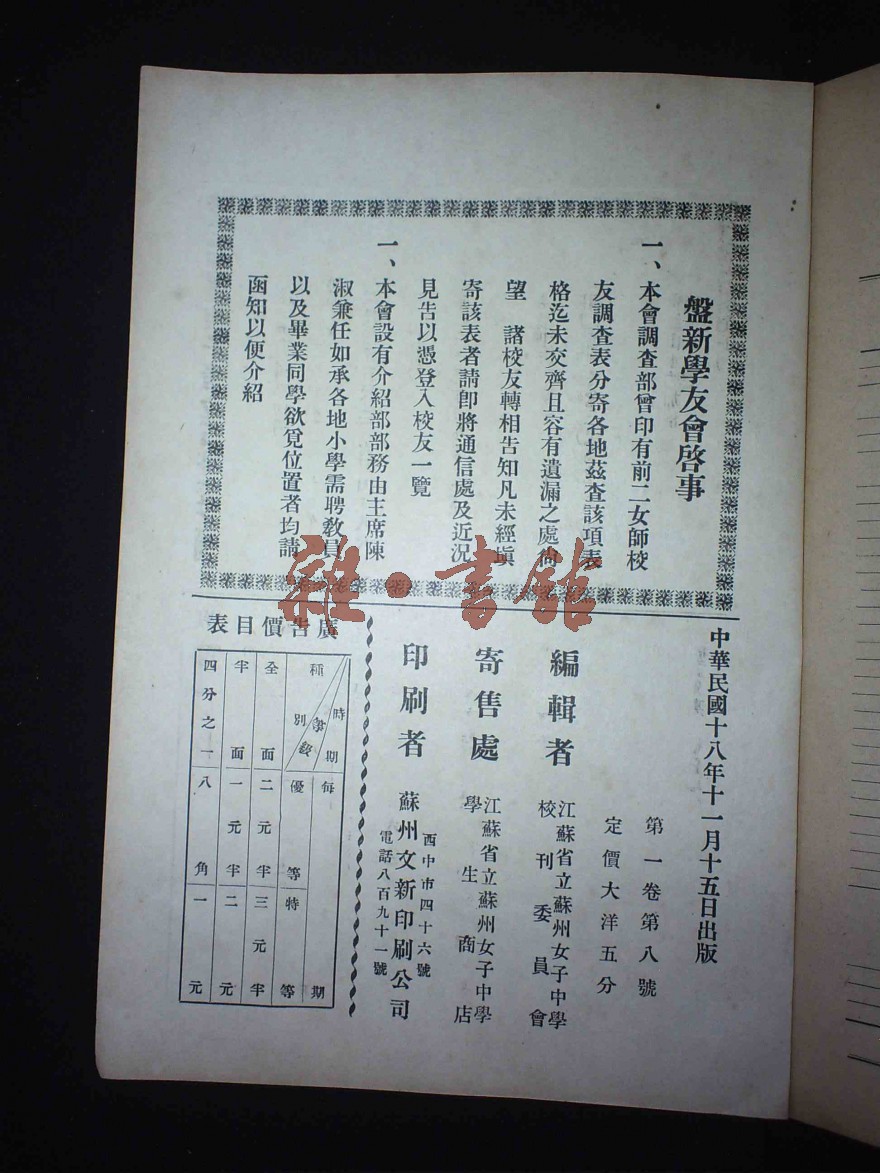 盤新學友會啓事
一、本會調查部曾印有前二女師校
友調查表分寄各地茲查該項表
格迄未交齊且容有遺漏之處尙
望　諸校友轉相告知凡未經塡
寄該表者請卽將通信處及近況
見告以憑登入校友一覽
一、本會設有介紹部部務由主席陳
淑兼任如承各地小學需聘敎員
以及畢業同學欲覓位置者均請
函知以便介紹
中華民國十八年十一月十五日出版
第一卷第八號
定價大洋五分
編輯者
江蘇省立蘇州女子中學
校刊委員會
寄售處
江蘇省立蘇州女子中學
學生商店
印刷者
西中市四十六號
蘇州文新印刷公司
電話八百九十一號
廣告價目表
時期
等級
種別
每期
優等
特等
全面
二元半
三元半
半面
一元半
二元
四分之一
八角
一元
雜·書館